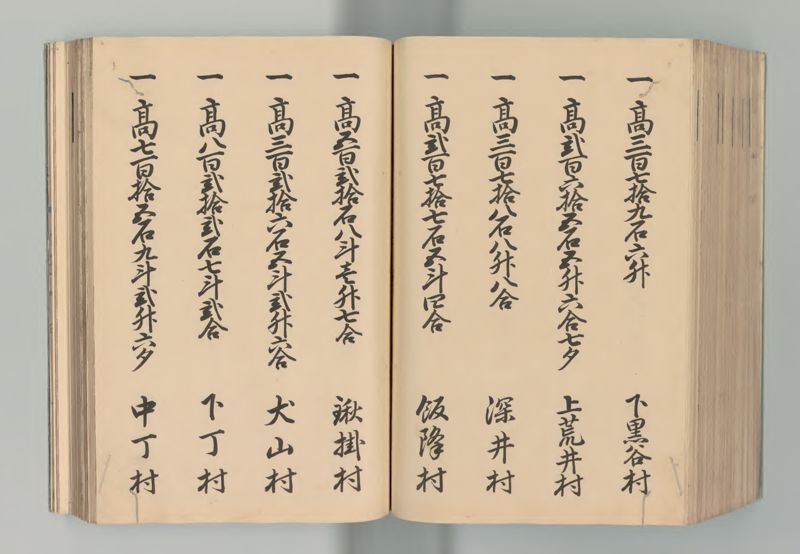 一 高三百七拾九石六升 下黒谷村
一 高弐百六拾五石五升六合七夕 上荒井村
一 高三百七拾八石八升八合 深井村
一 高弐百七拾七石五斗四合 飯降村
一 高五百弐拾石八斗壱升七合 鍬掛村
一 高三百弐拾六石五斗弐升六合 犬山村
一 高八百弐拾弐石七斗弐合 下丁村
一 高七百拾五石九斗弐升六夕 中丁村